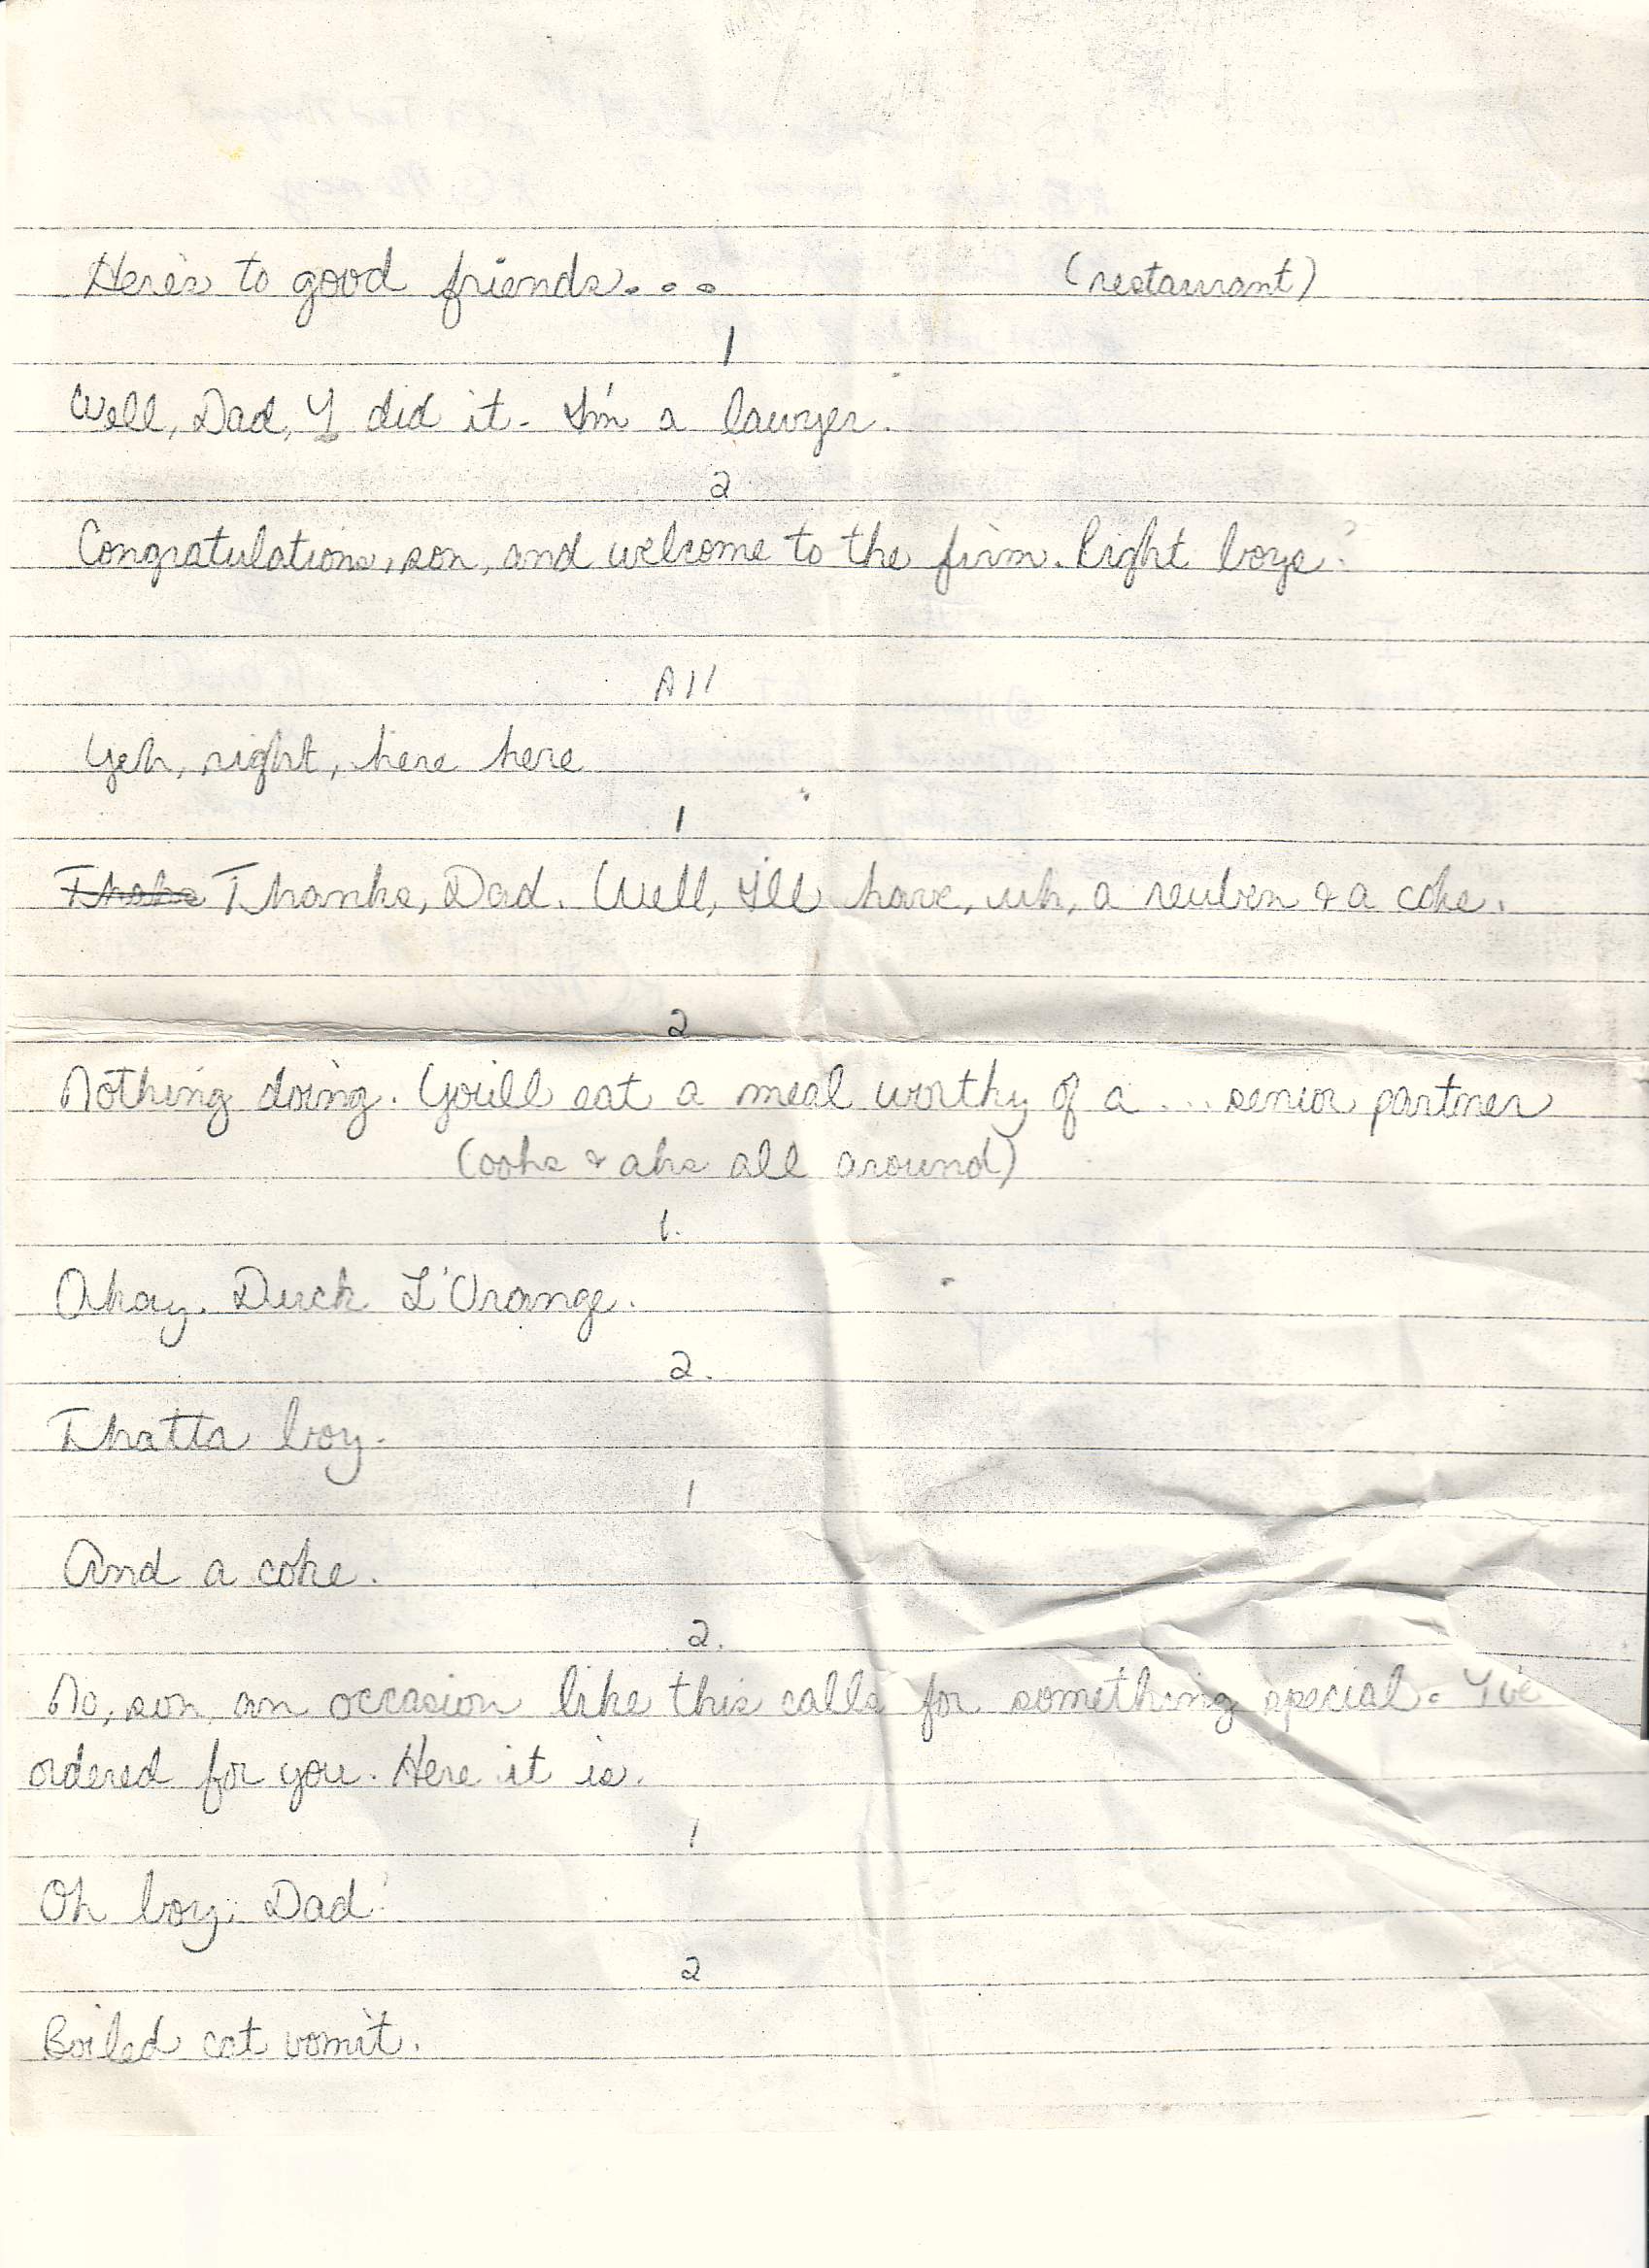 Here's to good friends... (restaurant)
1
Well, Dad, I did it. I'm a lawyer.
2
Congratulations, son, and welcome to the firm. Right boys?
All
Yeh, right, here here
1
Thaks Thanks, Dad. Well, I'll have, uh, a reuben & a coke.
2
Nothing doing. You'll eat a meal worthy of a ... senior partner
(oohs & ahs all around)
1.
Okay. Duck L'Orange.
2.
Thatta boy.
1
And a coke.
2.
No, son, an occasion like this calls for something special. I've
ordered for you. Here it is.
1
Oh boy, Dad!
2
Boiled cat vomit.